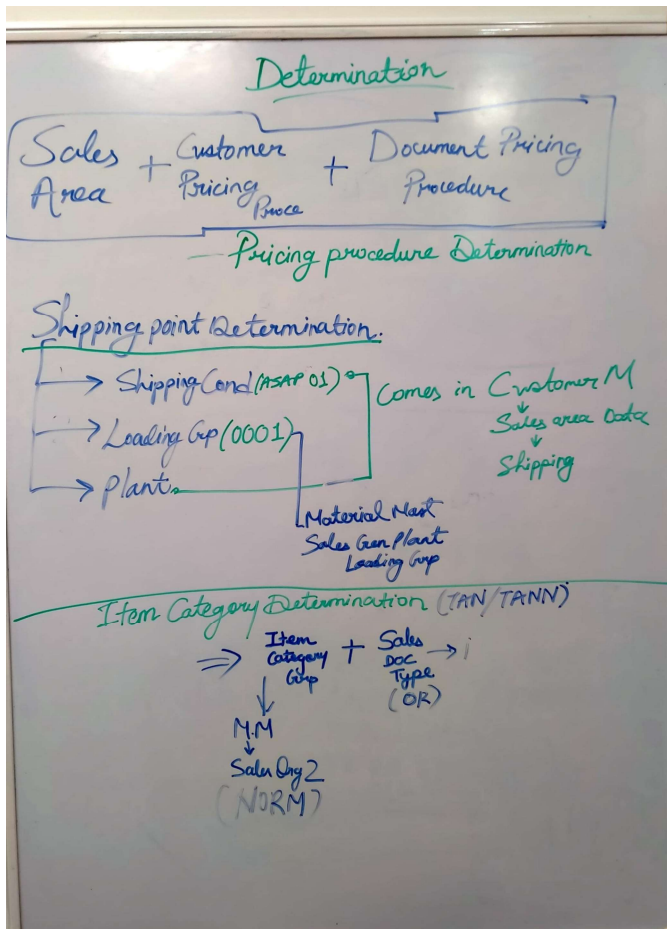 Determination
Sales Area + Customer Pricing Proce + Document Pricing Procedure
Pricing procedure Determination
Shipping point Determination.
Shipping Cond (ASAP 01)
Loading Grp (0001)
Plant
Comes in Customer M
Sales area Data
Shipping
Material Mast
Sales Gen Plant
Loading Grp
Item Category Determination (TAN/TANN)
⇒ Item Category Grp + Sales Doc Type → i
(OR)
M.M
Sales Org 2
(NORM)